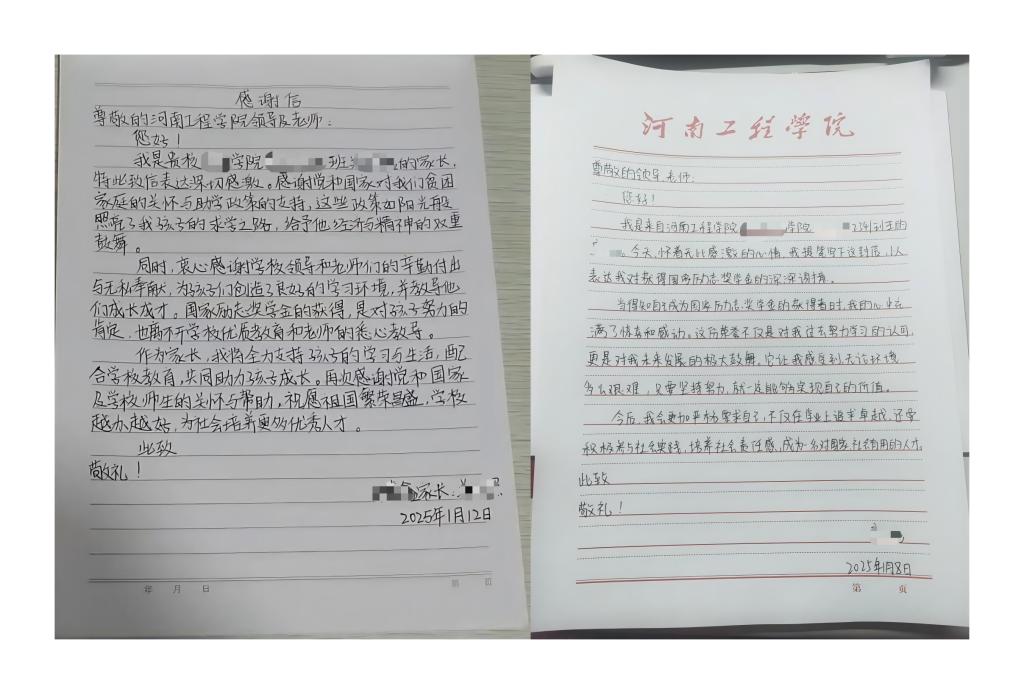 感谢信
尊敬的河南工程学院领导及老师：
您好！
我是贵校 学院 班 的家长，
特此致信表达深切感激。感谢党和国家对我们贫困
家庭的关怀与助学政策的支持，这些政策如阳光般
照亮了我孩子的求学之路，给予他经济与精神的双重
鼓舞。
同时，衷心感谢学校领导和老师们的辛勤付出
与无私奉献，为孩子们创造了良好的学习环境，并教导他
们成长成才。国家励志奖学金的获得，是对孩子努力的
肯定，也离不开学校优质教育和老师的悉心教导。
作为家长，我将全力支持孩子的学习与生活，配
合学校教育，共同助力孩子成长。再次感谢党和国家
及学校师生的关怀与帮助，祝愿祖国繁荣昌盛，学校
越办越好，为社会培养更多优秀人才。
此致
敬礼！
家长：
2025年1月12日
年 月 日
第 页
河南工程学院
尊敬的领导、老师：
您好！
我是来自河南工程学院 学院 班的
今天，怀着无比感激的心情，我提笔写下这封信，以
表达我对获得国家励志奖学金的深深谢意。
当得知自己成为国家励志奖学金的获得者时，我的心中充
满了惊喜和感动。这份荣誉不仅是对我过去努力学习的认可，
更是对我未来发展的极大鼓舞。它让我感受到无论环境
多么艰难，只要坚持努力，就一定能够实现自己的价值。
今后，我会更加严格要求自己，不仅在学业上追求卓越，还要
积极参与社会实践，培养社会责任感，成为一名对国家社会有用的人才。
此致
敬礼！
2025年1月8日
第 页